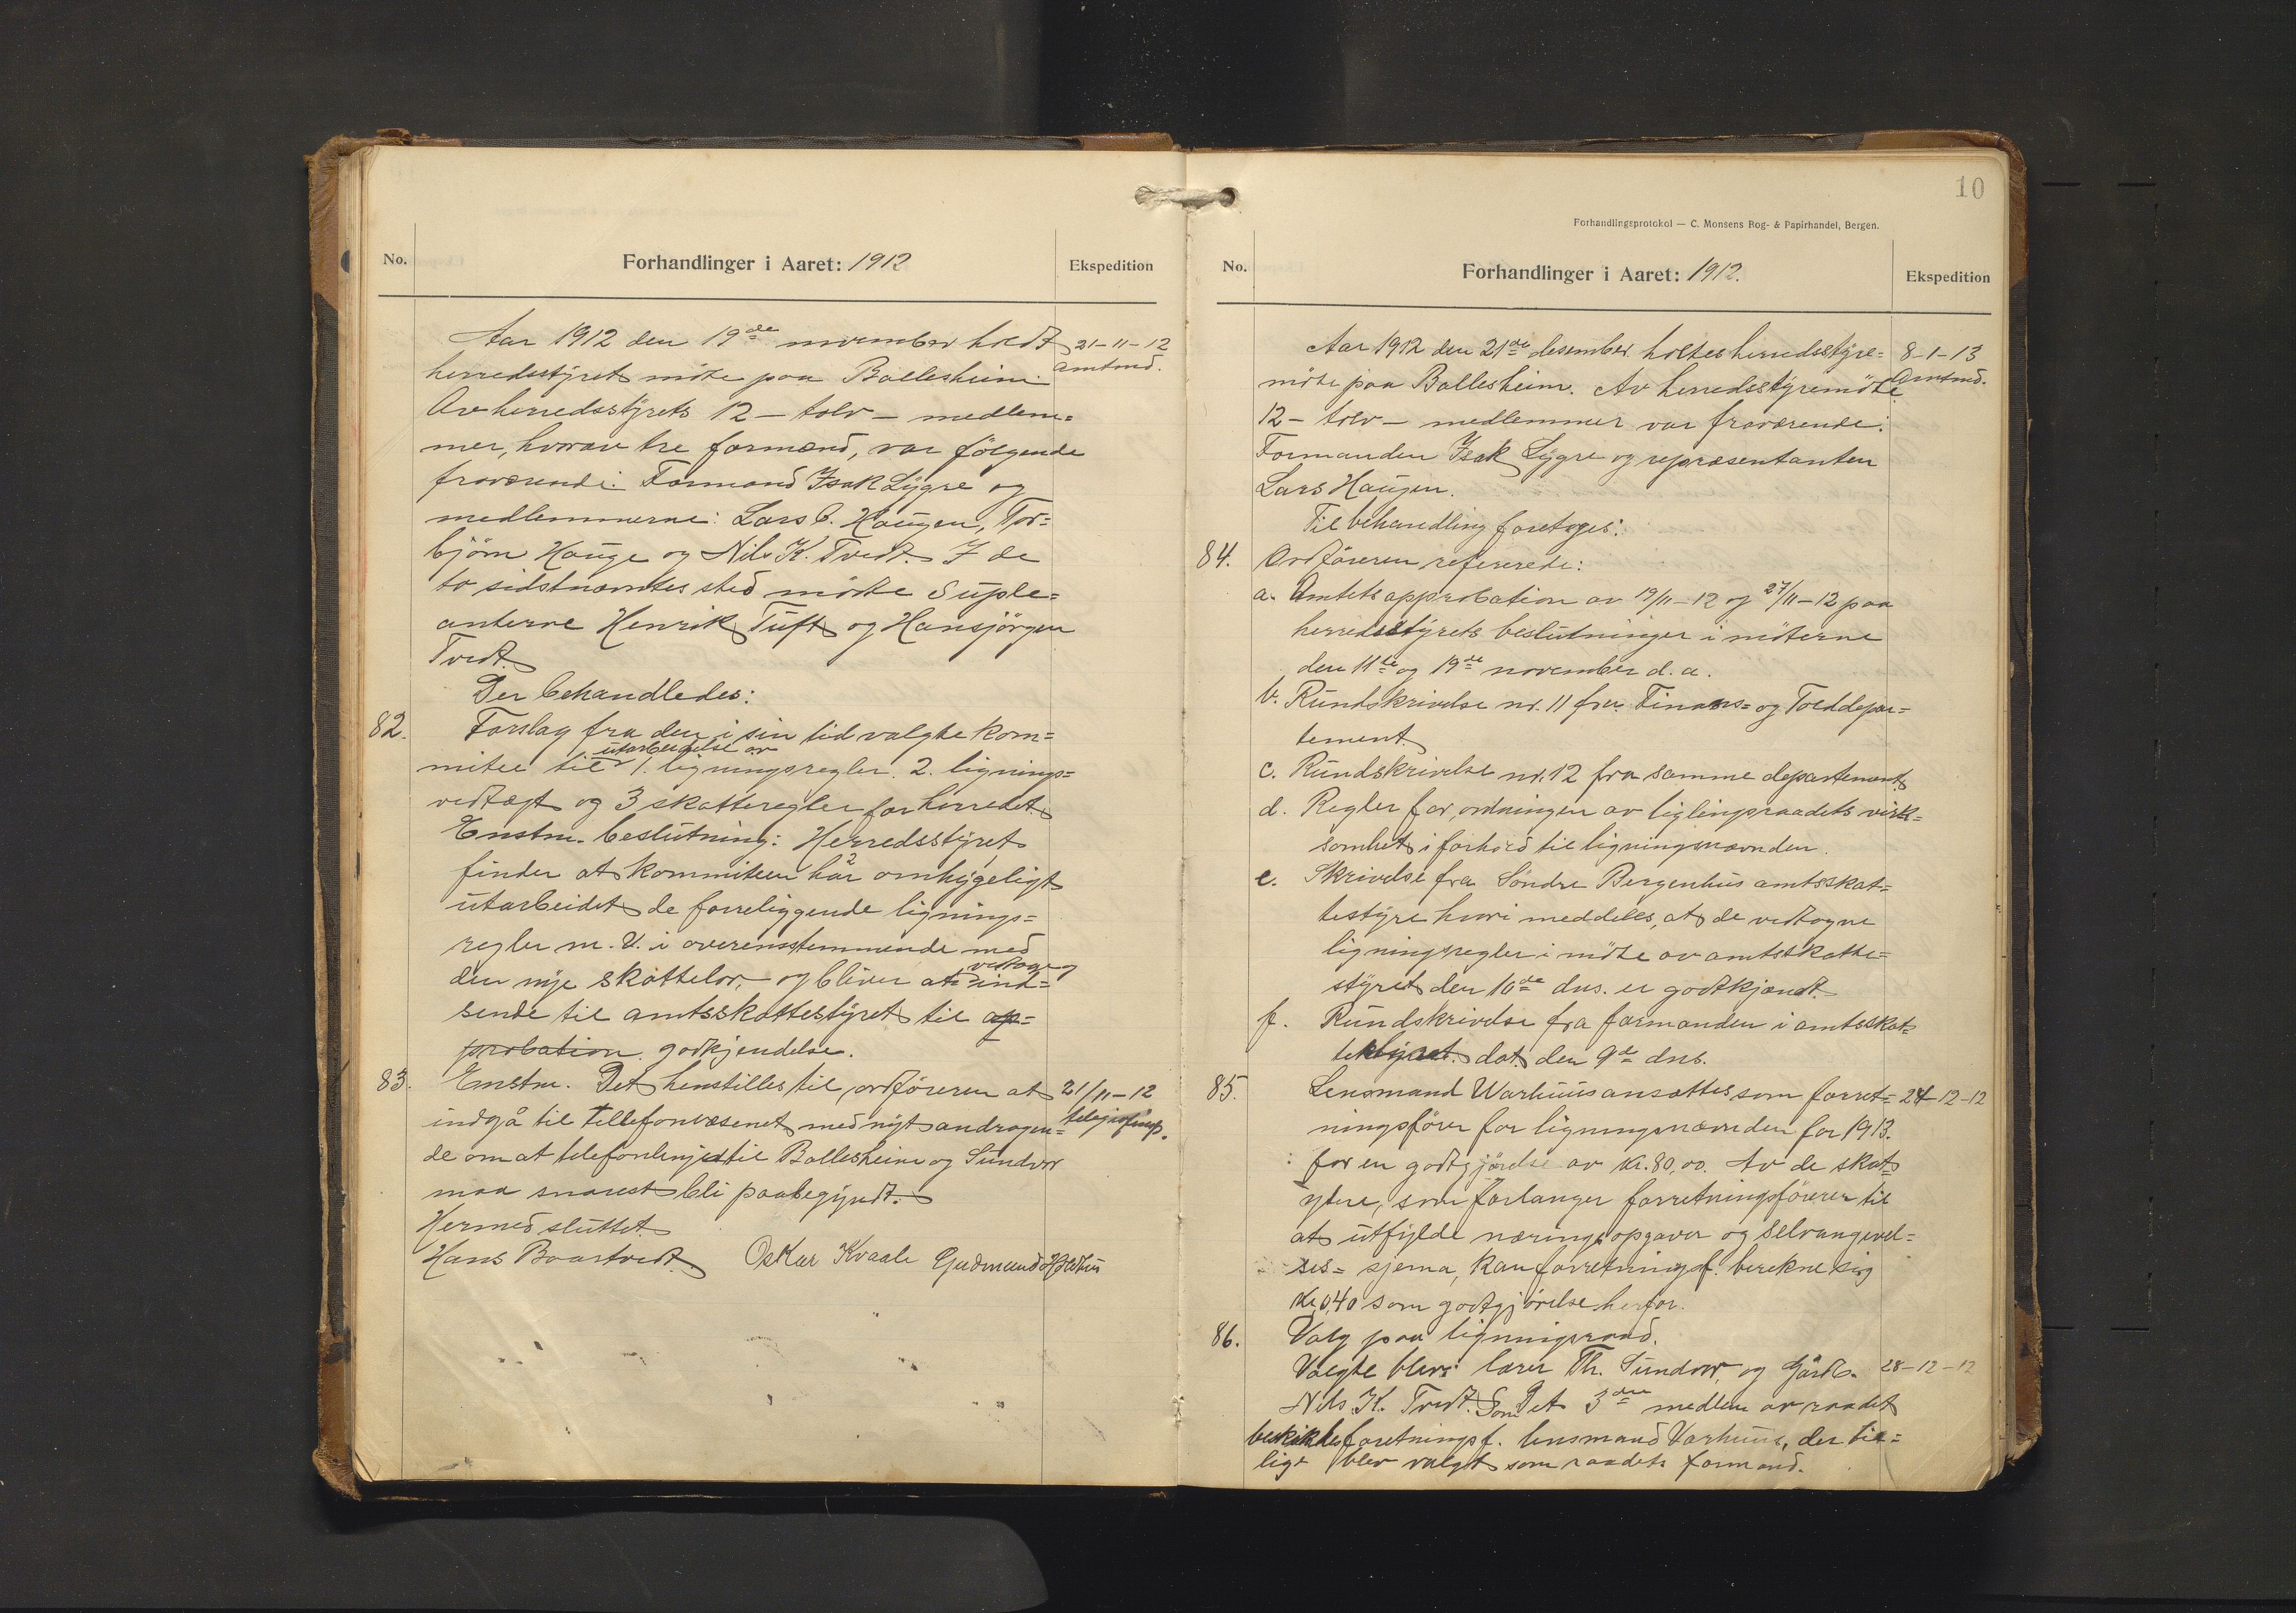 No.
Forhandlinger i Aaret: 1912
Ekspedition
Aar 1912 den 19de november holdt
21-11-12
herredsstyret møte paa Ballesheim.
amtmd.
Av herredsstyrets 12 – tolv – medlem=
mer, hvorav tre formænd, var følgende
fraværende: Formand Isak Lygre og
medlemmerne: Lars C. Haugen, Tor=
björn Hauge og Nils K. Tvedt. I de
to sidstnævntes sted mötte Suple=
anterne Henrik Tuft og Hansjörgen
Tvedt.
Der behandledes:
82.
Forslag fra den i sin tid valgte kom=
utarbeidelse av
mitee til 1. ligningsregler. 2. lignings=
vedtægt og 3 skatteregler for herredet.
Enstm. beslutning: Herredsstyret
finder at kommiteen här omhygeligt
utarbeidet de foreliggende lignings=
regler m. v. i overensstemmende med
vedtage og
den nye skattelov, og bliver at ind=
sende til amtsskattestyret til ap=
probation. godkjendelse.
83.
Enstm. Det henstilles til ordföreren at
21/11-12
indgå til tellefonvæsenet med nyt andragen=
telegrafinsp.
de om at telefonlinjed til Ballesheim og Sundvor
maa snarest bli paabegyndt.
Hermed sluttet.
Hans Baartvedt. Oskar Kvaale Gudmund Holdhus
10
Forhandlingsprotokol — C. Monsens Bog- & Papirhandel, Bergen.
No.
Forhandlinger i Aaret: 1912.
Ekspedition
Aar 1912 den 21de desember holtes herredsstyre=
8-1-13
møte paa Ballesheim. Av herredsstyremöte
Amtmd.
12 – tolv – medlemmer var fraværende:
Formanden Isak Lygre og repræsentanten
Lars Haugen.
Til behandling foretoges:
84.
Ordföreren refererede:
a. Amtets approbation av 19/11-12 og 27/11-12 paa
herredsstyrets beslutninger i möterne
den 11te og 19de november d. a.
b. Rundskrivelse nr. 11 fra Finans= og Tolddepar=
tement.
c. Rundskrivelse nr. 12 fra samme departement.
d. Regler for ordningen av liglingsraadets virk=
somhet i forhold til ligningsnævnden.
e. Skrivelse fra Söndre Bergenhus amtsskat=
testyre hvori meddeles, at de vedtagne
ligningsregler i møte av amtsskatte=
styret den 10de dns. er godkjændt.
f. Rundskrivelse fra formanden i amtsskat=
testyret. dat. den 9de dns.
85.
Lensmand Warhuus ansættes som forret=
24-12-12
ningsförer for ligningsnævnden for 1913.
for en godtgjörelse av kr. 80,00. Av de skat=
ytere, som forlanger forretningsförerer til
at utfylde næringsopgaver og selvangivel=
ses= sjema, kan forretningsf. berekne sig
kr. 0,40 som godtgjörelse herfor.
86.
Valg paa ligningsraad.
Valgte blev: lærer Th. Sundvor, og Gårdb.
28-12-12
Nils K. Tvedt. Som Det 3die medlem av raadet
beskikkes foretningsf. lensmand Varhuus, der til=
lige blev valgt som raadets formand.